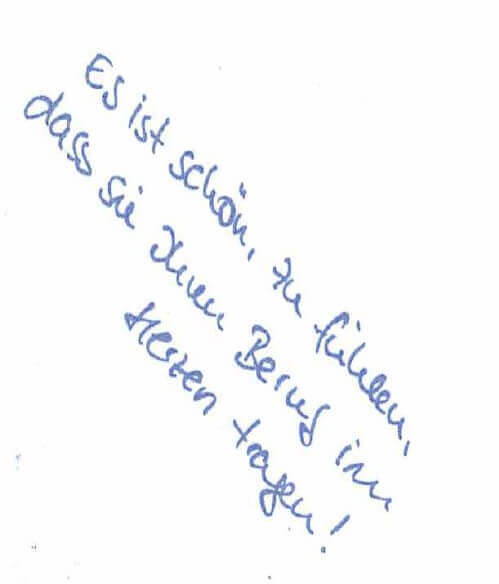 Es ist schön, zu fühlen,
dass sie Ihren Beruf im
Herzen tragen!